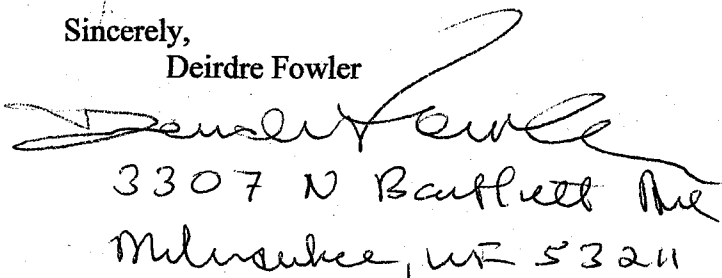 Sincerely,
Deirdre Fowler
Deirdre Fowler
3307 N Bartlett Ave
Milwaukee, WI 53211